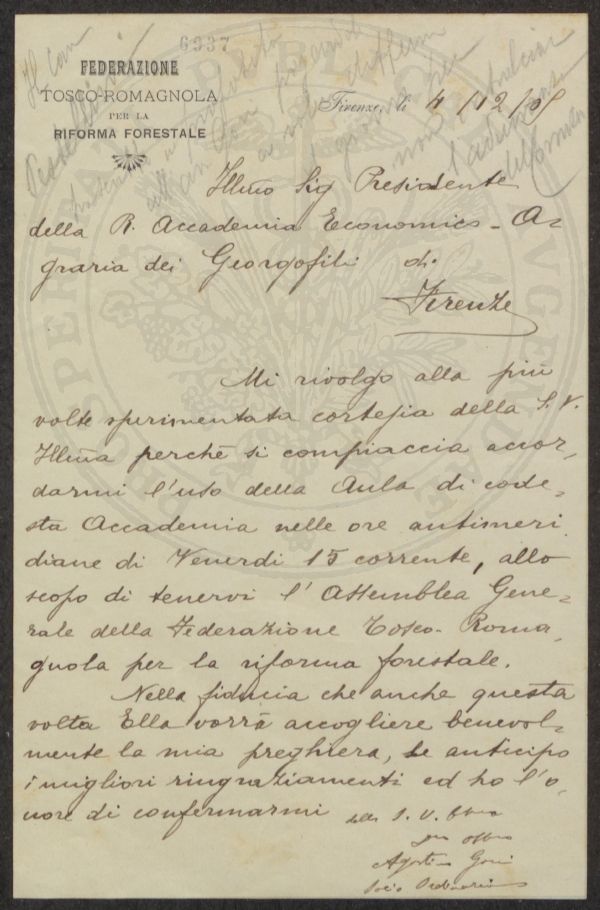 6937
FEDERAZIONE
TOSCO-ROMAGNOLA
PER LA
RIFORMA FORESTALE
Firenze, li 4/12/05
Illmo Sig Presidente
della R. Accademia Economico-A-
graria dei Georgofili di
Firenze
Mi rivolgo alla più
volte sperimentata cortesia della S. V.
Illma perchè si compiaccia accor-
darmi l'uso della Aula di code-
sta Accademia nelle ore antimeri
diane di Venerdi 15 corrente, allo
scopo di tenervi l'Assemblea Gene-
rale della Federazione Tosco-Roma-
gnola per la riforma forestale.
Nella fiducia che anche questa
volta Ella vorrà accogliere benevol-
mente la mia preghiera, Le anticipo
i migliori ringraziamenti ed ho l'o-
nore di confermarmi
della S. V. Illma
Socio Ordinario
PROSPERITATI PUBLICAE AVGENDAE